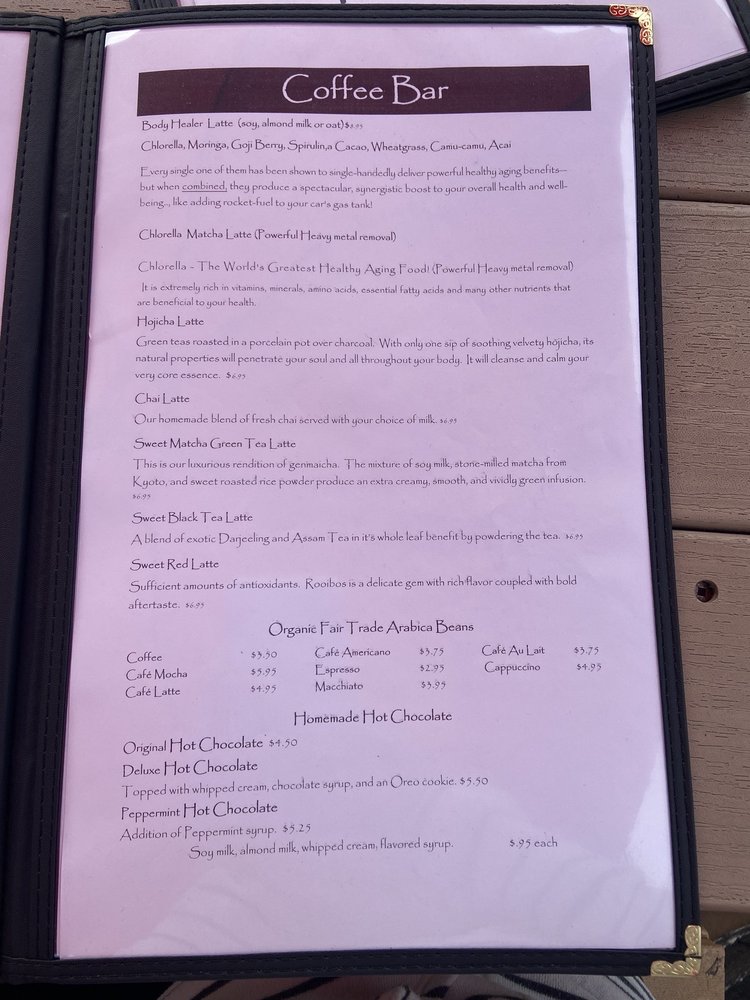 Coffee Bar
Body Healer Latte (soy, almond milk or oat)$8.95
Chlorella, Moringa, Goji Berry, Spirulin,a Cacao, Wheatgrass, Camu-camu, Acai
Every single one of them has been shown to single-handedly deliver powerful healthy aging benefits—
but when combined, they produce a spectacular, synergistic boost to your overall health and well-
being.., like adding rocket-fuel to your car's gas tank!
Chlorella Matcha Latte (Powerful Heavy metal removal)
Chlorella - The World's Greatest Healthy Aging Food! (Powerful Heavy metal removal)
It is extremely rich in vitamins, minerals, amino acids, essential fatty acids and many other nutrients that
are beneficial to your health.
Hojicha Latte
Green teas roasted in a porcelain pot over charcoal. With only one sip of soothing velvety hojicha, its
natural properties will penetrate your soul and all throughout your body. It will cleanse and calm your
very core essence. $6.95
Chai Latte
Our homemade blend of fresh chai served with your choice of milk. $6.95
Sweet Matcha Green Tea Latte
This is our luxurious rendition of genmaicha. The mixture of soy milk, stone-milled matcha from
Kyoto, and sweet roasted rice powder produce an extra creamy, smooth, and vividly green infusion.
$6.95
Sweet Black Tea Latte
A blend of exotic Darjeeling and Assam Tea in it's whole leaf benefit by powdering the tea. $6.95
Sweet Red Latte
Sufficient amounts of antioxidants. Rooibos is a delicate gem with rich flavor coupled with bold
aftertaste. $6.95
Organic Fair Trade Arabica Beans
Coffee $3.50 Café Americano $3.75 Café Au Lait $3.75
Café Mocha $5.95 Espresso $2.95 Cappuccino $4.95
Café Latte $4.95 Macchiato $3.95
Homemade Hot Chocolate
Original Hot Chocolate $4.50
Deluxe Hot Chocolate
Topped with whipped cream, chocolate syrup, and an Oreo cookie. $5.50
Peppermint Hot Chocolate
Addition of Peppermint syrup. $5.25
Soy milk, almond milk, whipped cream, flavored syrup. $.95 each